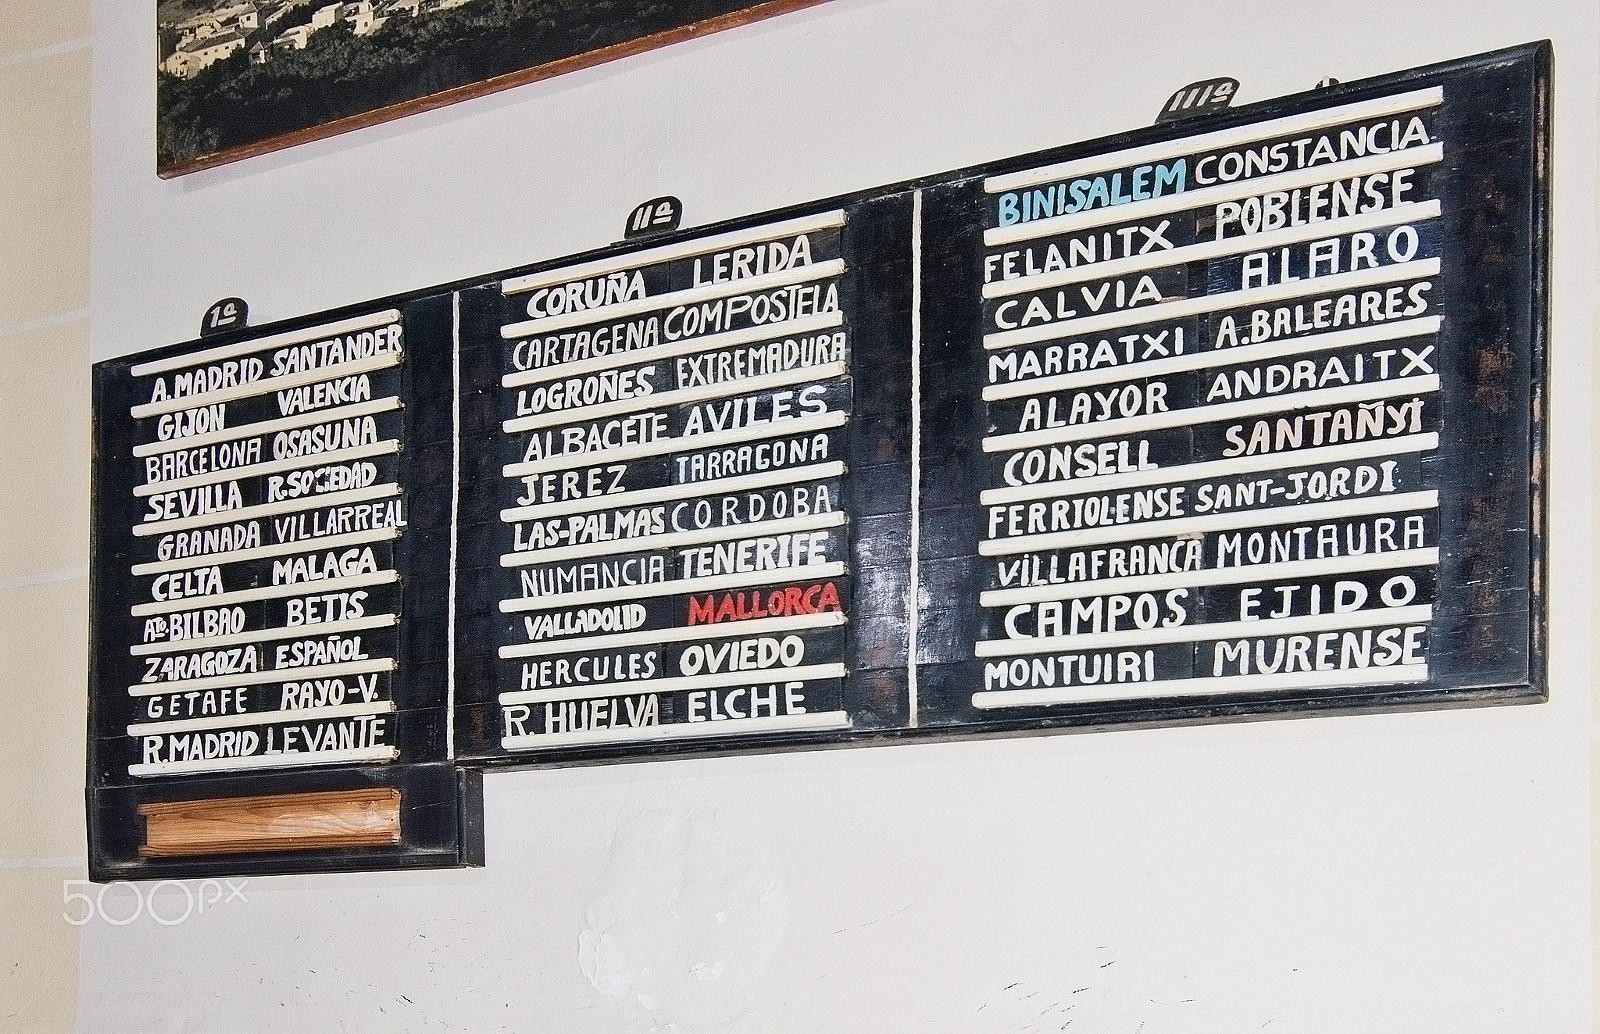 1ª
A.MADRID SANTANDER
GIJON VALENCIA
BARCELONA OSASUNA
SEVILLA R.SOCIEDAD
GRANADA VILLARREAL
CELTA MALAGA
Aᵀᴼ.BILBAO BETIS
ZARAGOZA ESPAÑOL
GETAFE RAYO-V.
R.MADRID LEVANTE
IIª
CORUÑA LERIDA
CARTAGENA COMPOSTELA
LOGROÑES EXTREMADURA
ALBACETE AVILES
JEREZ TARRAGONA
LAS-PALMAS CORDOBA
NUMANCIA TENERIFE
VALLADOLID MALLORCA
HERCULES OVIEDO
R. HUELVA ELCHE
IIIª
BINISALEM CONSTANCIA
FELANITX POBLENSE
CALVIA ALARO
MARRATXI A.BALEARES
ALAYOR ANDRAITX
CONSELL SANTAÑYI
FERRIOLENSE SANT-JORDI
VILLAFRANCA MONTAURA
CAMPOS EJIDO
MONTUIRI MURENSE
500px